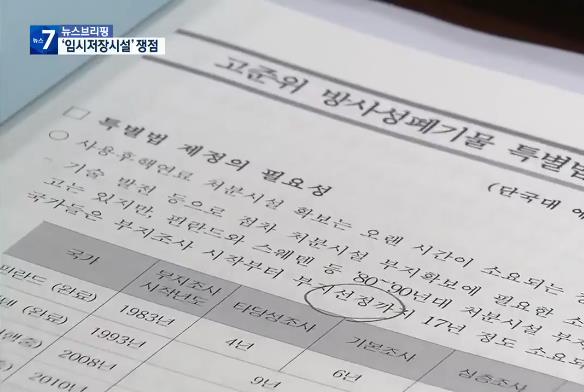 뉴스7
뉴스브리핑
‘임시저장시설’ 쟁점
고준위 방사성폐기물 특별법
(단국대
□ 특별법 제정의 필요성
○ 사용후핵연료 처분시설 확보는 오랜 시간이 소요되는
기술 발전 등으로 점차 처분시설 부지확보에 필요한
고는 있지만, 핀란드와 스웨덴 등 '80~'90년대 처분시설
국가들은 부지조사 시작부터 부지선정까지 17년 정도 소요
국가 부지조사 시작년도 타당성조사 기본조사 심층조사
핀란드 (완료) 1983년 4년 6년
(완료) 1993년
2008년 9년
2010년